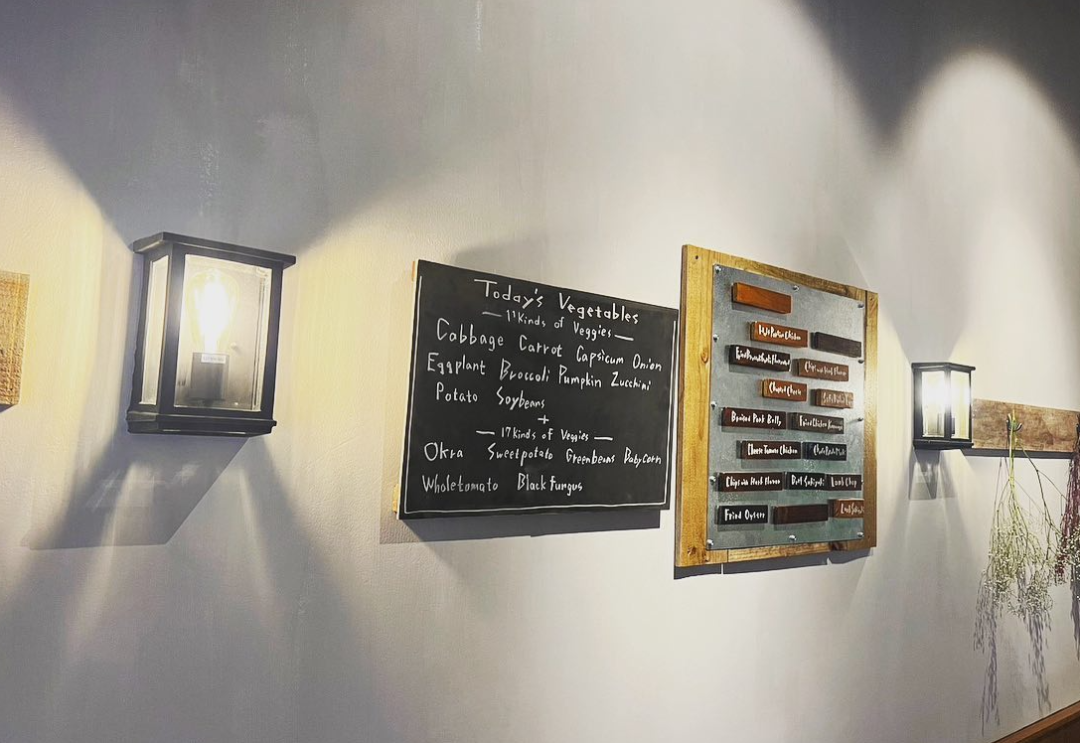 Today's Vegetables
— 11kinds of Veggies —
Cabbage Carrot Capsicum Onion
Eggplant Broccoli Pumpkin Zucchini
Potato Soybeans
+
— 17kinds of Veggies —
Okra Sweetpotato Greenbeans Babycorn
Wholetomato Blackfungus
Chips with Herb Flavour
Boiled Pork Belly
Fried Chicken
Cheese Tomato Chicken
Chips with Herb Flavour Beef Sukiyaki Lamb Chop
Fried Oyster